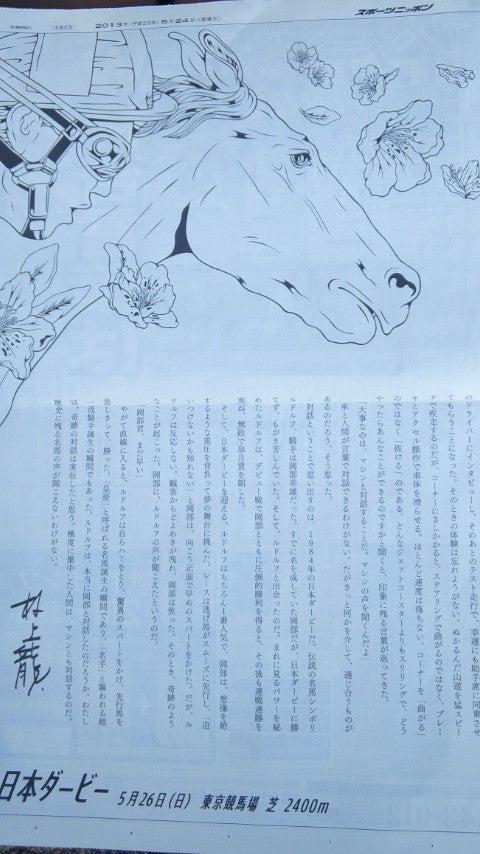 スポーツニッポン
2013年(平成25年)5月24日(金曜日)
のドライバーにインタビューし、そのあとのテスト走行で、幸運にも助手席に同乗させ
てもらうことになった。そのときの体験は忘れようがない。ぬかるんだ山道を猛スピー
ドで疾走するのだが、コーナーにさしかかると、ステアリングで曲がるのではなく、ブレー
キとアクセル操作で車体を滑らせる。ほとんど速度は落ちない。コーナーを「曲がる」
のではなく、「抜ける」のである。どんなジェットコースターよりもスリリングで、どう
やったらあんなことができるのですかと聞くと、印象に残る言葉が返ってきた。
「大事なのは、マシンと対話することだ。マシンの声を聞くんだよ」
車と人間が言葉で対話できるわけがない。だがきっと何かを介して、通じ合うものが
あるのだろう、そう思った。
対話ということで思い出すのは、1984年の日本ダービーだ。伝説の名馬シンボリ
ルドルフ、騎手は岡部幸雄だった。すでに名を成していた岡部だが、日本ダービーに勝
てず、もがき苦しんでいた。そして、ルドルフと出会ったのだ。まれに見るパワーを秘
めたルドルフは、デビュー戦で岡部とともに圧倒的勝利を得ると、その後も連戦連勝を
重ね、無敗で皐月賞を制した。
そして、日本ダービーを迎える。ルドルフはもちろん一番人気で、岡部は、想像を絶
するような重圧を背負って夢の舞台に挑んだ。レースは逃げ馬がスムーズに先行し、「追
いつけないかも知れない」と岡部は、向こう正面で早めのスパートをかけた。だが、ル
ドルフは反応しない。観客からどよめきが洩れ、岡部は焦った。そのとき、奇跡のよう
なことが起こった。岡部に、ルドルフの声が聞こえたというのだ。
「岡部君、まだ早い」
やがて直線に入ると、ルドルフは自らハミをとり、驚異のスパートをかけ、先行馬を
差しきって、勝った。「皇帝」と呼ばれる名馬誕生の瞬間であり、「名手」と謳われる超
一流騎手誕生の瞬間でもあった。ルドルフは、本当に岡部と対話したのだろうか。わたし
は、奇跡の対話は実在したと思う。極度に集中した人間は、マシンとも対話するのだ。
歴史に残る名馬の声が聞こえないわけがない。
村上龍
日本ダービー 5月26日(日) 東京競馬場 芝 2400m